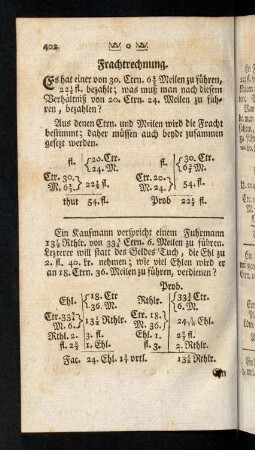 402
o
Frachtrechnung.
Es hat einer von 30. Ctrn. 6¾ Meilen zu führen,
22½ fl. bezahlt; was muß man nach diesem
Verhältniß von 20. Ctrn. 24. Meilen zu füh-
ren, bezahlen?
Aus denen Ctrn. und Meilen wird die Fracht
bestimmt; daher müssen auch beyde zusammen
gesezt werden.
fl. {20. Ctr. 24. M. fl. {30. Ctr. 6¾ M.
Ctr. 30. M. 6¾.} 22½ fl. Ctr. 20. M. 24.} 54. fl.
thut 54. fl. Prob 22½ fl.
Ein Kaufmann verspricht einem Fuhrmann
Rthlr. von Ctrn. 6. Meilen zu führen.
Lezterer will statt des Geldes Tuch, die Ehl zu
2. fl. 40. kr. nehmen; wie viel Ehlen wird er
an 18. Ctrn. 36. Meilen zu führen, verdienen?
Prob.
Ehl. {18. Ctr 36. M. Rthlr. Ctr. 6. M.
Ctr. M. 6.} Rthlr. Ctr. 18. M. 36.} Ehl.
Rthl. 2. 3. fl. Ehl. 1.
fl. 1. Ehl. fl. 3. 2. Rthlr.
Fac. 24. Ehl. vrtl. Rthlr.